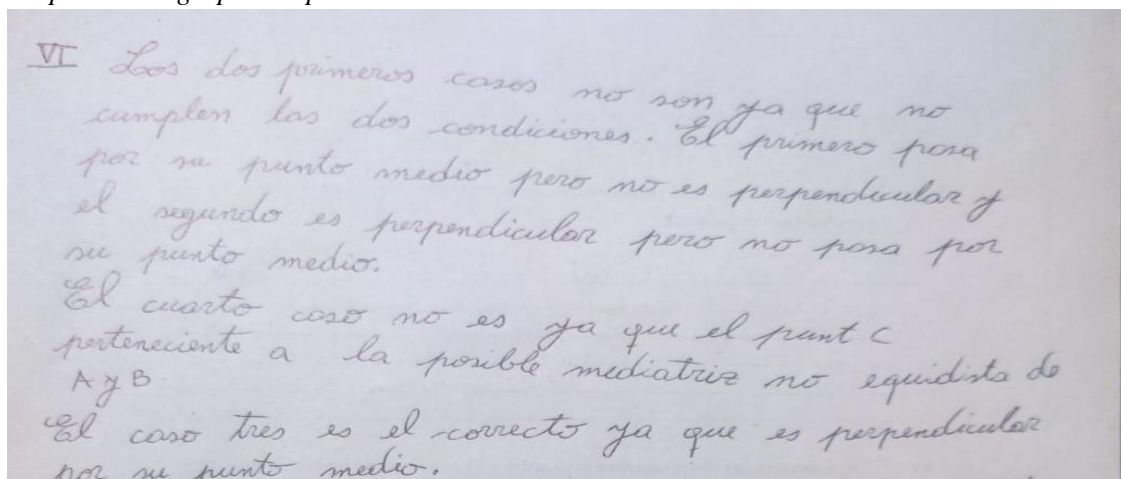 VI Los dos primeros casos no son ya que no
cumplen las dos condiciones. El primero pasa
por su punto medio pero no es perpendicular y
el segundo es perpendicular pero no pasa por
su punto medio.
El cuarto caso no es ya que el punt C
perteneciente a la posible mediatriz no equidista de
A y B
El caso tres es el correcto ya que es perpendicular
por su punto medio.